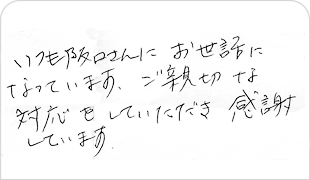 いつも阪口さんに お世話に
なっています。ご親切な
対応をしていただき 感謝
しています。